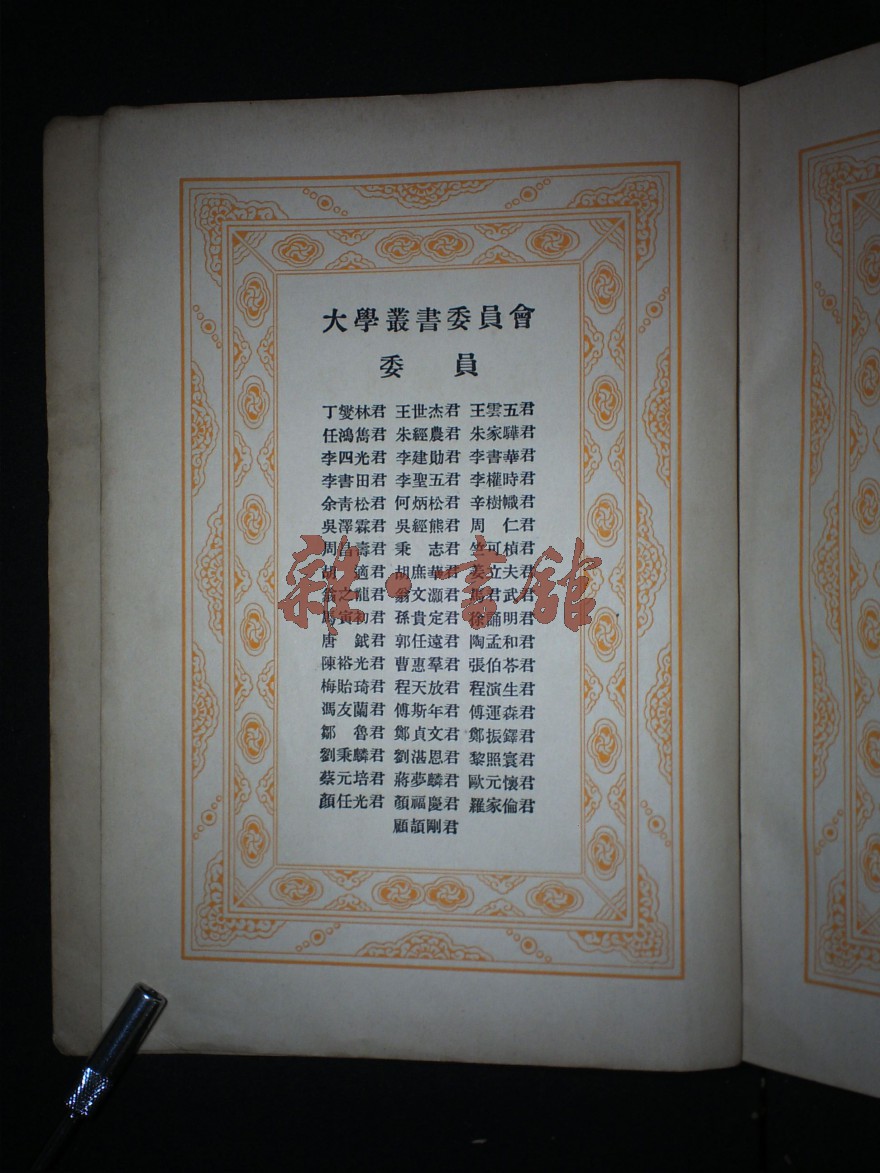 大學叢書委員會
委 員
丁燮林君 王世杰君 王雲五君
任鴻雋君 朱經農君 朱家驊君
李四光君 李建勛君 李書華君
李書田君 李聖五君 李權時君
余青松君 何炳松君 辛樹幟君
吳澤霖君 吳經熊君 周 仁君
周昌壽君 秉 志君 竺可楨君
胡 適君 胡庶華君 姜立夫君
翁之龍君 翁文灝君 馬君武君
馬寅初君 孫貴定君 徐誦明君
唐 鉞君 郭任遠君 陶孟和君
陳裕光君 曹惠羣君 張伯苓君
梅貽琦君 程天放君 程演生君
馮友蘭君 傅斯年君 傅運森君
鄒 魯君 鄭貞文君 鄭振鐸君
劉秉麟君 劉湛恩君 黎照寰君
蔡元培君 蔣夢麟君 歐元懷君
顏任光君 顏福慶君 羅家倫君
顧頡剛君
雜·書館